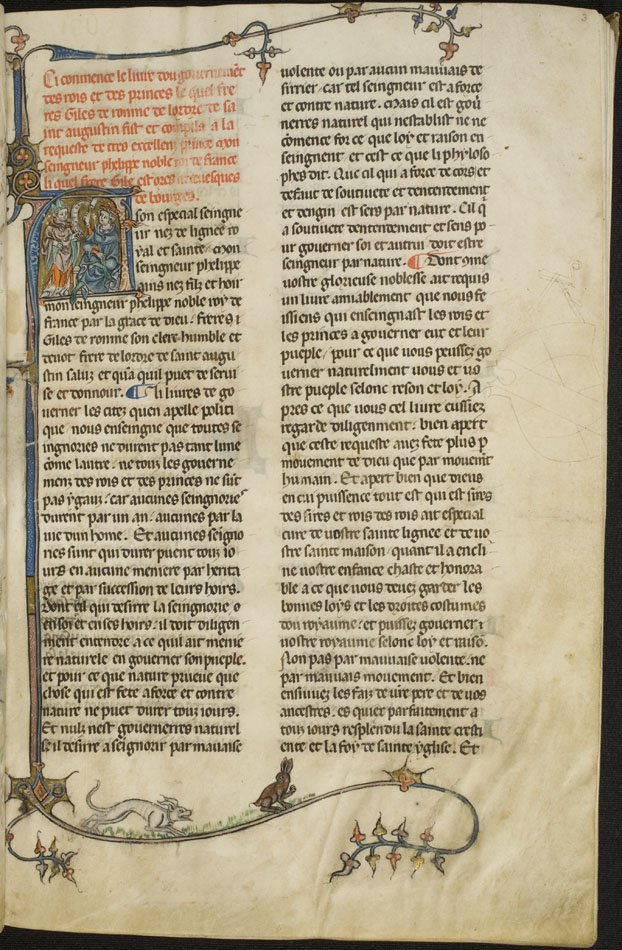 Ci commence le livre dou gouvernemēt
des rois et des princes le quel fre
res Giles de romme de lordre de sa
int augustin fist et compila a la
requeste de tres excellent prince mon
seingneur phelippe noble roy de france
li quel frere Gile est ores arcevesques
de bourges.
son especial seingne
ur nez de lignee ro
yal et sainte. mon
seingneur phelippe
ains nez filz et hoir
mon seingneur phelippe noble roy de
france par la grace de dieu. freres
Giles de romme son clerc humble et
devot frere de lordre de saint augu
stin saluz et quā quil puet de servi
se et donnour. ¶ Li livres de go
verner les citez quen apelle politi
que nous enseingne que toutes se
ingnories ne durent pas tant lune
cōme lautre. ne touz les governe
menz des rois et des princes ne sūt
pas ygauz. car aucunes seingnorie
durent par un an. aucunes par la
vie dun home. Et aucunes seigno
ries sunt qui durer puent touz io
urs en aucune meniere par herita
ge et par succession de leurs hoirs.
Dont cil qui desirre la seingnorie
en soi et en ses hoirs. il doit diligen
ment entendre a ce quil ait menie
re naturele en governer son pueple.
et pour ce que nature prueve que
chose qui est fete a force et contre
nature ne puet durer touz iours.
Et nulz nest governerres naturel
se il desirre a seignorir par mauvaise
volente ou par aucun mauvais de
sirrier. car tel seingneur est a force
et contre nature. Mais cil est gou
nerres naturel qui nestablist ne ne
cōmence fors ce que loy et raison en
seingnent et cest ce que li phyloso
phes dit. Que cil qui a force de cors et
defaut de soutivete et dentendement
et dengin est sers par nature. Cil q
a soutivete dentendement et sens po
ur governer soi et autrui doit estre
seingneur par nature. ¶ Dont 9me
vostre glorieuse noblesse ait requis
un livre amiablement que nous fe
issiens qui enseingnast les rois et
les princes a governer eux et leur
pueple. pour ce que vous peussez go
verner naturelment vous et vo
stre pueple selonc reson et loy. A
pres ce que vous cel livre eussiez
regarde diligenment. bien apert
que ceste requeste avez fete plus p
movement de dieu que par movemt
humain. Et apert bien que dieus
en cui puissence tout est qui est sires
des sires et rois des rois ait especial
cure de vostre sainte lignee et de vo
stre sainte maison. quant il a encli
ne vostre enfance chaste et honora
ble a ce que vous devez garder les
bonnes loys et les droites costumes
dou royaume. et puissez governer
vostre royaume selonc loy et raisō.
Non pas par mauvaise volente. ne
par mauvais movement. Et bien
ensuivez les faiz de vrē pere et de vos
ancestres. es quiex parfaitement a
touz iours resplendu la sainte cresti
ente et la foy de sainte yglise. Et